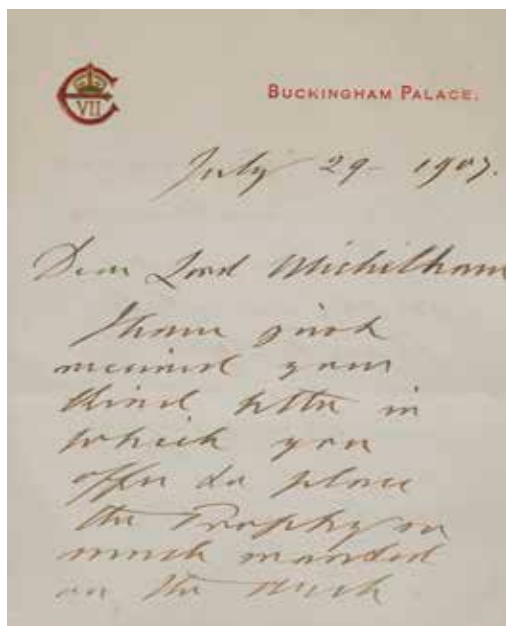 VII
BUCKINGHAM PALACE.
July 29- 1907.
Dear Lord Michelham
I have just
received your
kind letter in
which you
offer to place
the Trophy so
much wanted
on the Arch